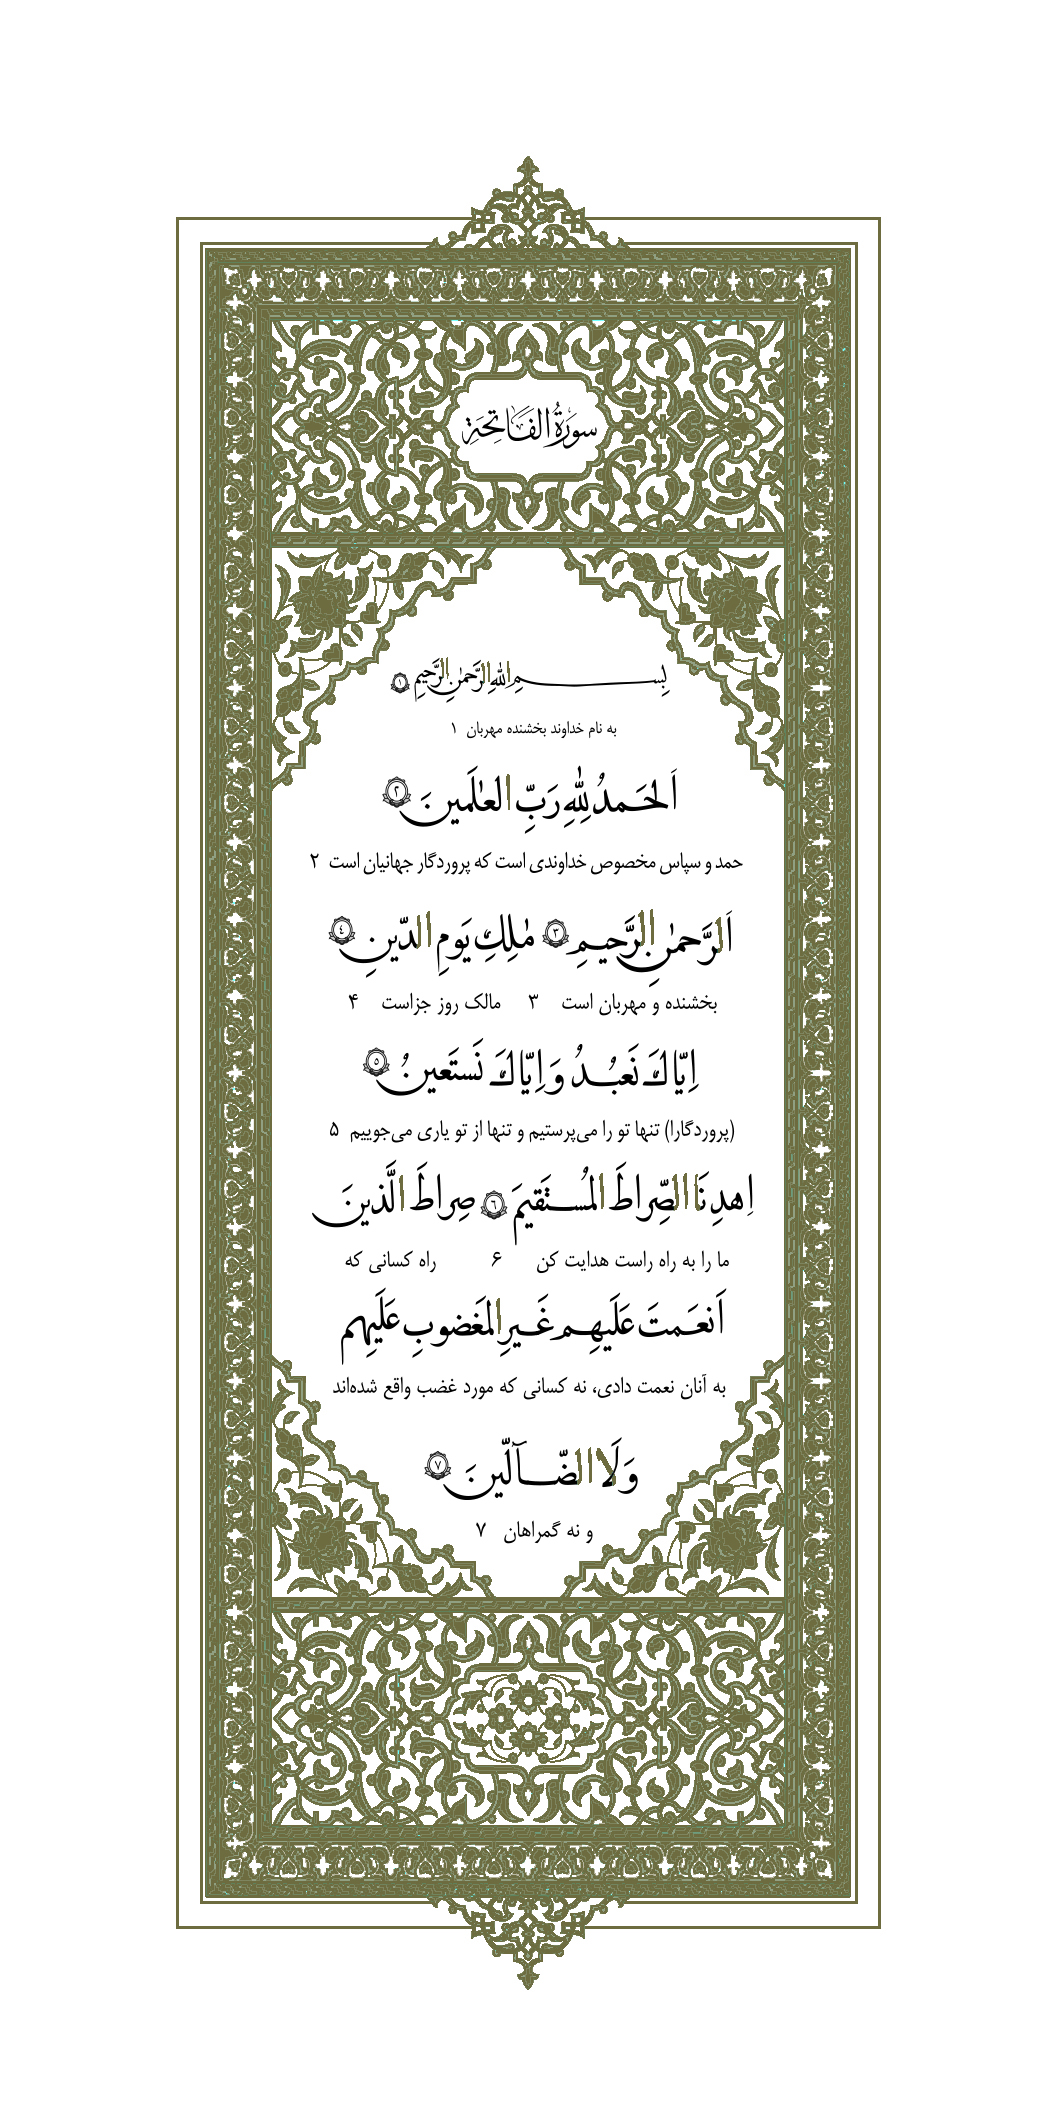 سورَةُ الفَاتِحَةِ
بِسمِ اللهِ الرَّحمٰنِ الرَّحيمِ ﴿١﴾
به نام خداوند بخشنده مهربان ۱
اَلحَمدُ لِلّٰهِ رَبِّ العٰلَمينَ ﴿٢﴾
حمد و سپاس مخصوص خداوندی است که پروردگار جهانیان است ۲
اَلرَّحمٰنِ الرَّحیمِ ﴿٣﴾ مٰلِكِ یَومِ الدّینِ ﴿٤﴾
بخشنده و مهربان است ۳ مالک روز جزاست ۴
اِیّاكَ نَعبُدُ وَ اِیّاكَ نَستَعینُ ﴿٥﴾
(پروردگارا) تنها تو را می‌پرستیم و تنها از تو یاری می‌جوییم ۵
اِهدِنَا الصِّراطَ المُستَقیمَ ﴿٦﴾ صِراطَ الَّذینَ
ما را به راه راست هدایت کن ۶ راه کسانی که
اَنعَمتَ عَلَیهِم غَیرِ المَغضوبِ عَلَیهِم
به آنان نعمت دادی، نه کسانی که مورد غضب واقع شده‌اند
وَلَا الضّآلّینَ ﴿٧﴾
و نه گمراهان ۷